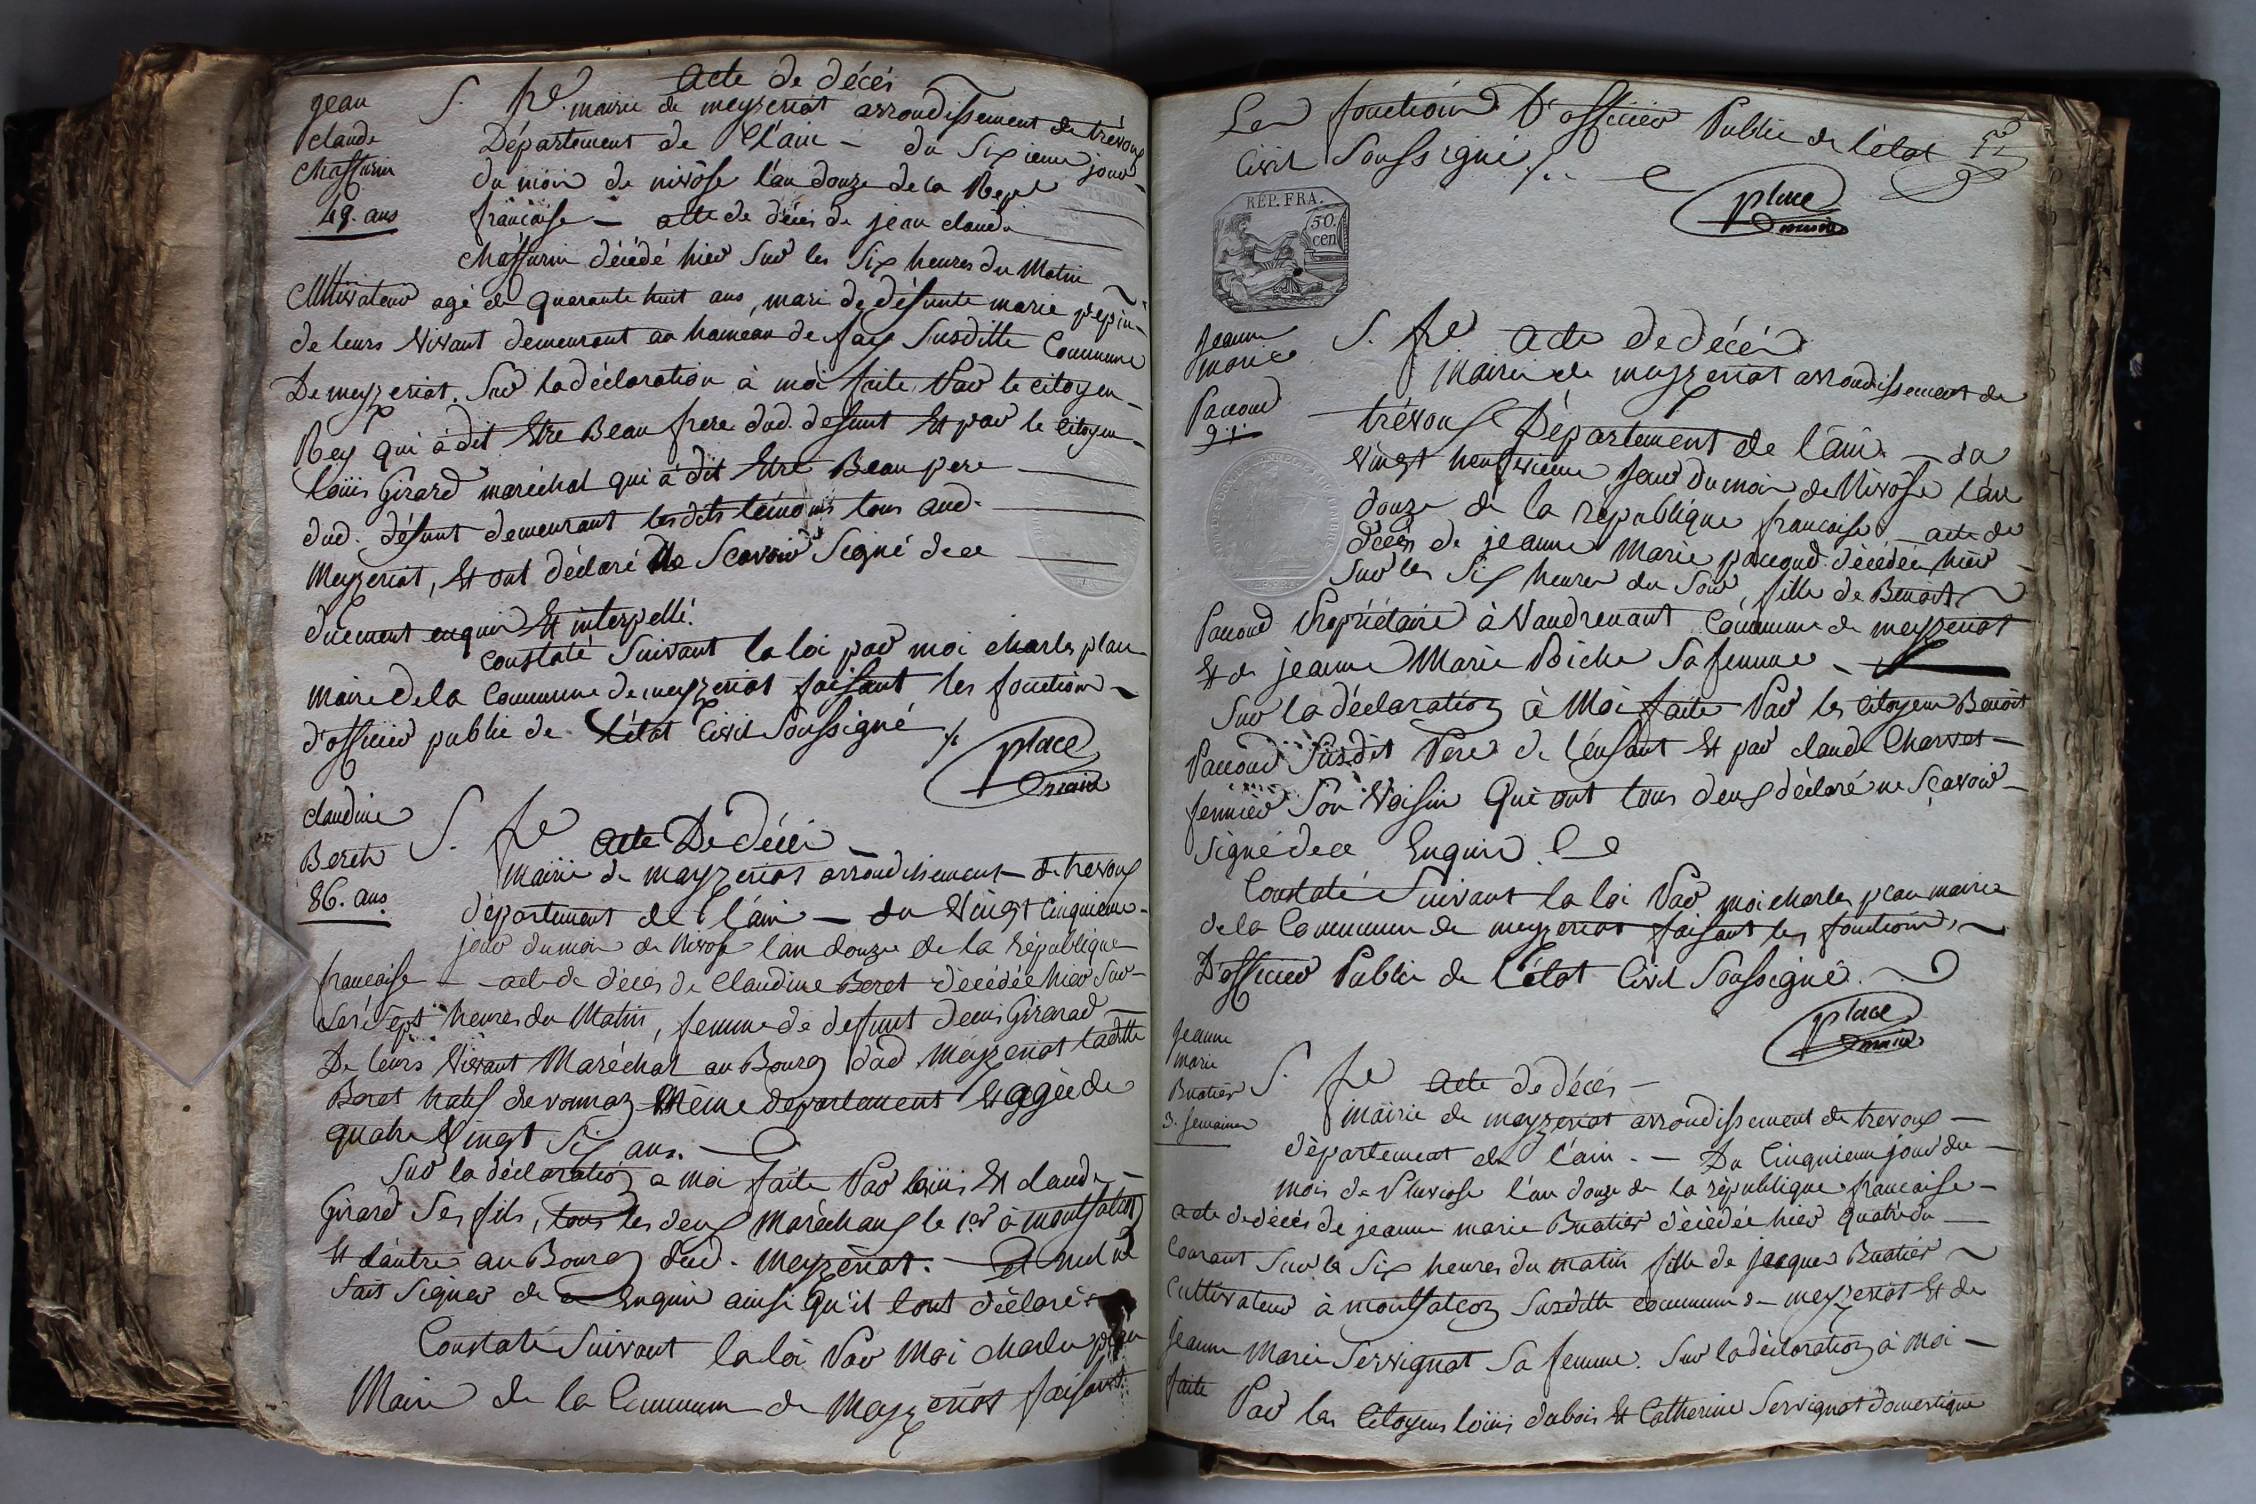 jean
claude
Chaffurin
49. ans
S. fe acte de décès
mairie de meyzeriat arrondissement de trévoux
Département de l'ain - du Sixieme jour
du mois de nivôse l'an douze de la Repe
française - acte de décès de jean claude
Chaffurin décédé hier Sur les Six heures du Matin
Cultivateur agé de quarante huit ans, mari de défunte marie pepin
de leurs vivant demeurant au hameau de fay Susditte Commune
De meyzeriat. Sur la déclaration à moi faite Par le citoyen
Rey qui à dit Etre Beau frere dud. defunt Et par le Citoyen
loüis Girard maréchal qui à dit Etre Beau pere
dud. défunt demeurant lesdits témoins tous aud.
Meyzeriat, Et ont déclaré Ne Scavoir Signé de ce
duement enquis Et interpellé.
Constaté Suivant la loi par moi charles place
maire de la Commune de meyzeriat faisant les fonctions
d'officier public de L'état Civil Soussigné
place
maire
claudine
Beret
86. ans
S. fe acte De Décès
mairie de mayzeriat arrondissement de trevoux
département de l'ain - du Vingt Cinquieme
jour du mois de Nivose l'an douze de la République
francaise - acte de décès de Claudine Beret décédée hier Sur
les Sept heures du Matin, femme de defunt Denis Girarad
De leurs Vivant Maréchal au Bourg dud Meyzeriat laditte
Beret native de vonnaz Même departement Et agée de
quatre Vingt Six ans.
Sur la déclaration a moi faite Par loüis Et claude
Girard Ses fils, tous les deux Maréchaux le 1er à montfalcon
Et l'autre au Bourg dud. Meyzeriat. Et nul ne
Sait Signer de ce Enquis ainsi qu'il l'ont déclaré
Constaté Suivant la loi Par Moi charles place
Maire de la Commune de Mayzeriat faisant
Les fonctions D'officier Public de l'état
Civil Soussigné
place
maire
REP. FRA.
50
cen
jeanne
marie
Paccoud
9. j.
S. fe Acte de décès
Mairie de mayzeriat arrondissement de
trévoux Département de l'ain - du
Vingt neufvieme Jour du mois de Nivôse l'an
douze de la république francaise - acte de
décès de jeanne Marie paccoud décédée hier
Sur les Six heures du Soir, fille de Benoit
Paccoud Propriétaire à Vandrenant Commune de meyzeriat
Et de jeanne Marie Biche Sa femme -
Sur la déclaration à Moi faite Par les Citoyens Benoit
Paccoud Susdit Pere de l'enfant Et par claude Charvet
fermier Son Voisin Qui ont tous deux déclaré ne Scavoir
Signé de ce Enquis.
Constaté Suivant la loi Par moi charles place maire
de la Commune de meyzeriat faisant les fonctions
D'officier Public de L'état Civil Soussigné.
place
maire
Jeanne
marie
Buatier
3. semaines
S. fe Acte de décès -
mairie de mayzeriat arrondissement de trevoux -
département de l'ain. - Du Cinquieme jour du -
mois de Pluviose l'an douze de la république francaise -
acte de décès de jeanne marie Buatier décédée hier quatre du
Courant Sur les Six heures du matin fille de jacques Buatier
Cultivateur à montfalcon Susditte commune de meyzeriat Et de
Jeanne Marie Servignat Sa femme. Sur la déclaration à Moi -
faite Par les Citoyens loüis dubois Et Catherine Servignat domestique